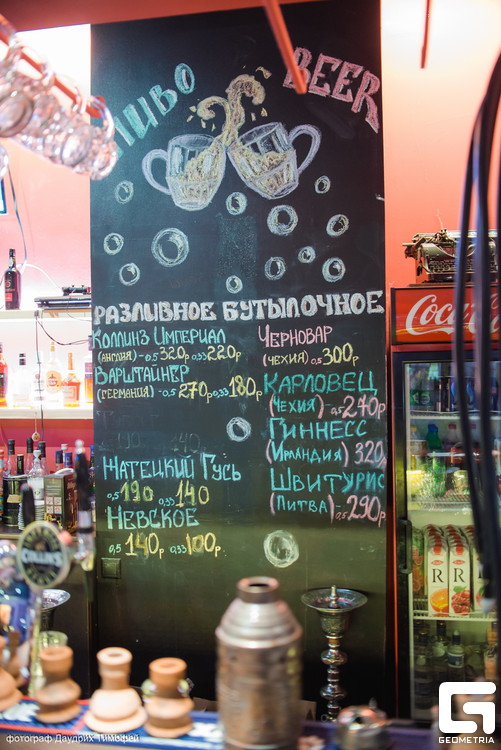 ПИВО
BEER
РАЗЛИВНОЕ
КОЛЛИНЗ ИМПЕРИАЛ
(АНГЛИЯ) - 0,5 320р 0,33 220р
ВАРШТАЙНЕР
(ГЕРМАНИЯ) - 0,5 270р 0,33 180р
140 140
ЖАТЕЦКИЙ ГУСЬ
0,5 190 0,33 140
НЕВСКОЕ
0,5 140р 0,33 100р
БУТЫЛОЧНОЕ
ЧЕРНОВАР
(ЧЕХИЯ) 0,5 300р
КАРЛОВЕЦ
(ЧЕХИЯ) 0,5 270р
ГИННЕСС
(ИРЛАНДИЯ) 320р
ШВИТУРИС
(ЛИТВА) - 0,5 290р
Coca
R
R
R
COLLINS
фотограф Даудрих Тимофей
GEOMETRIA